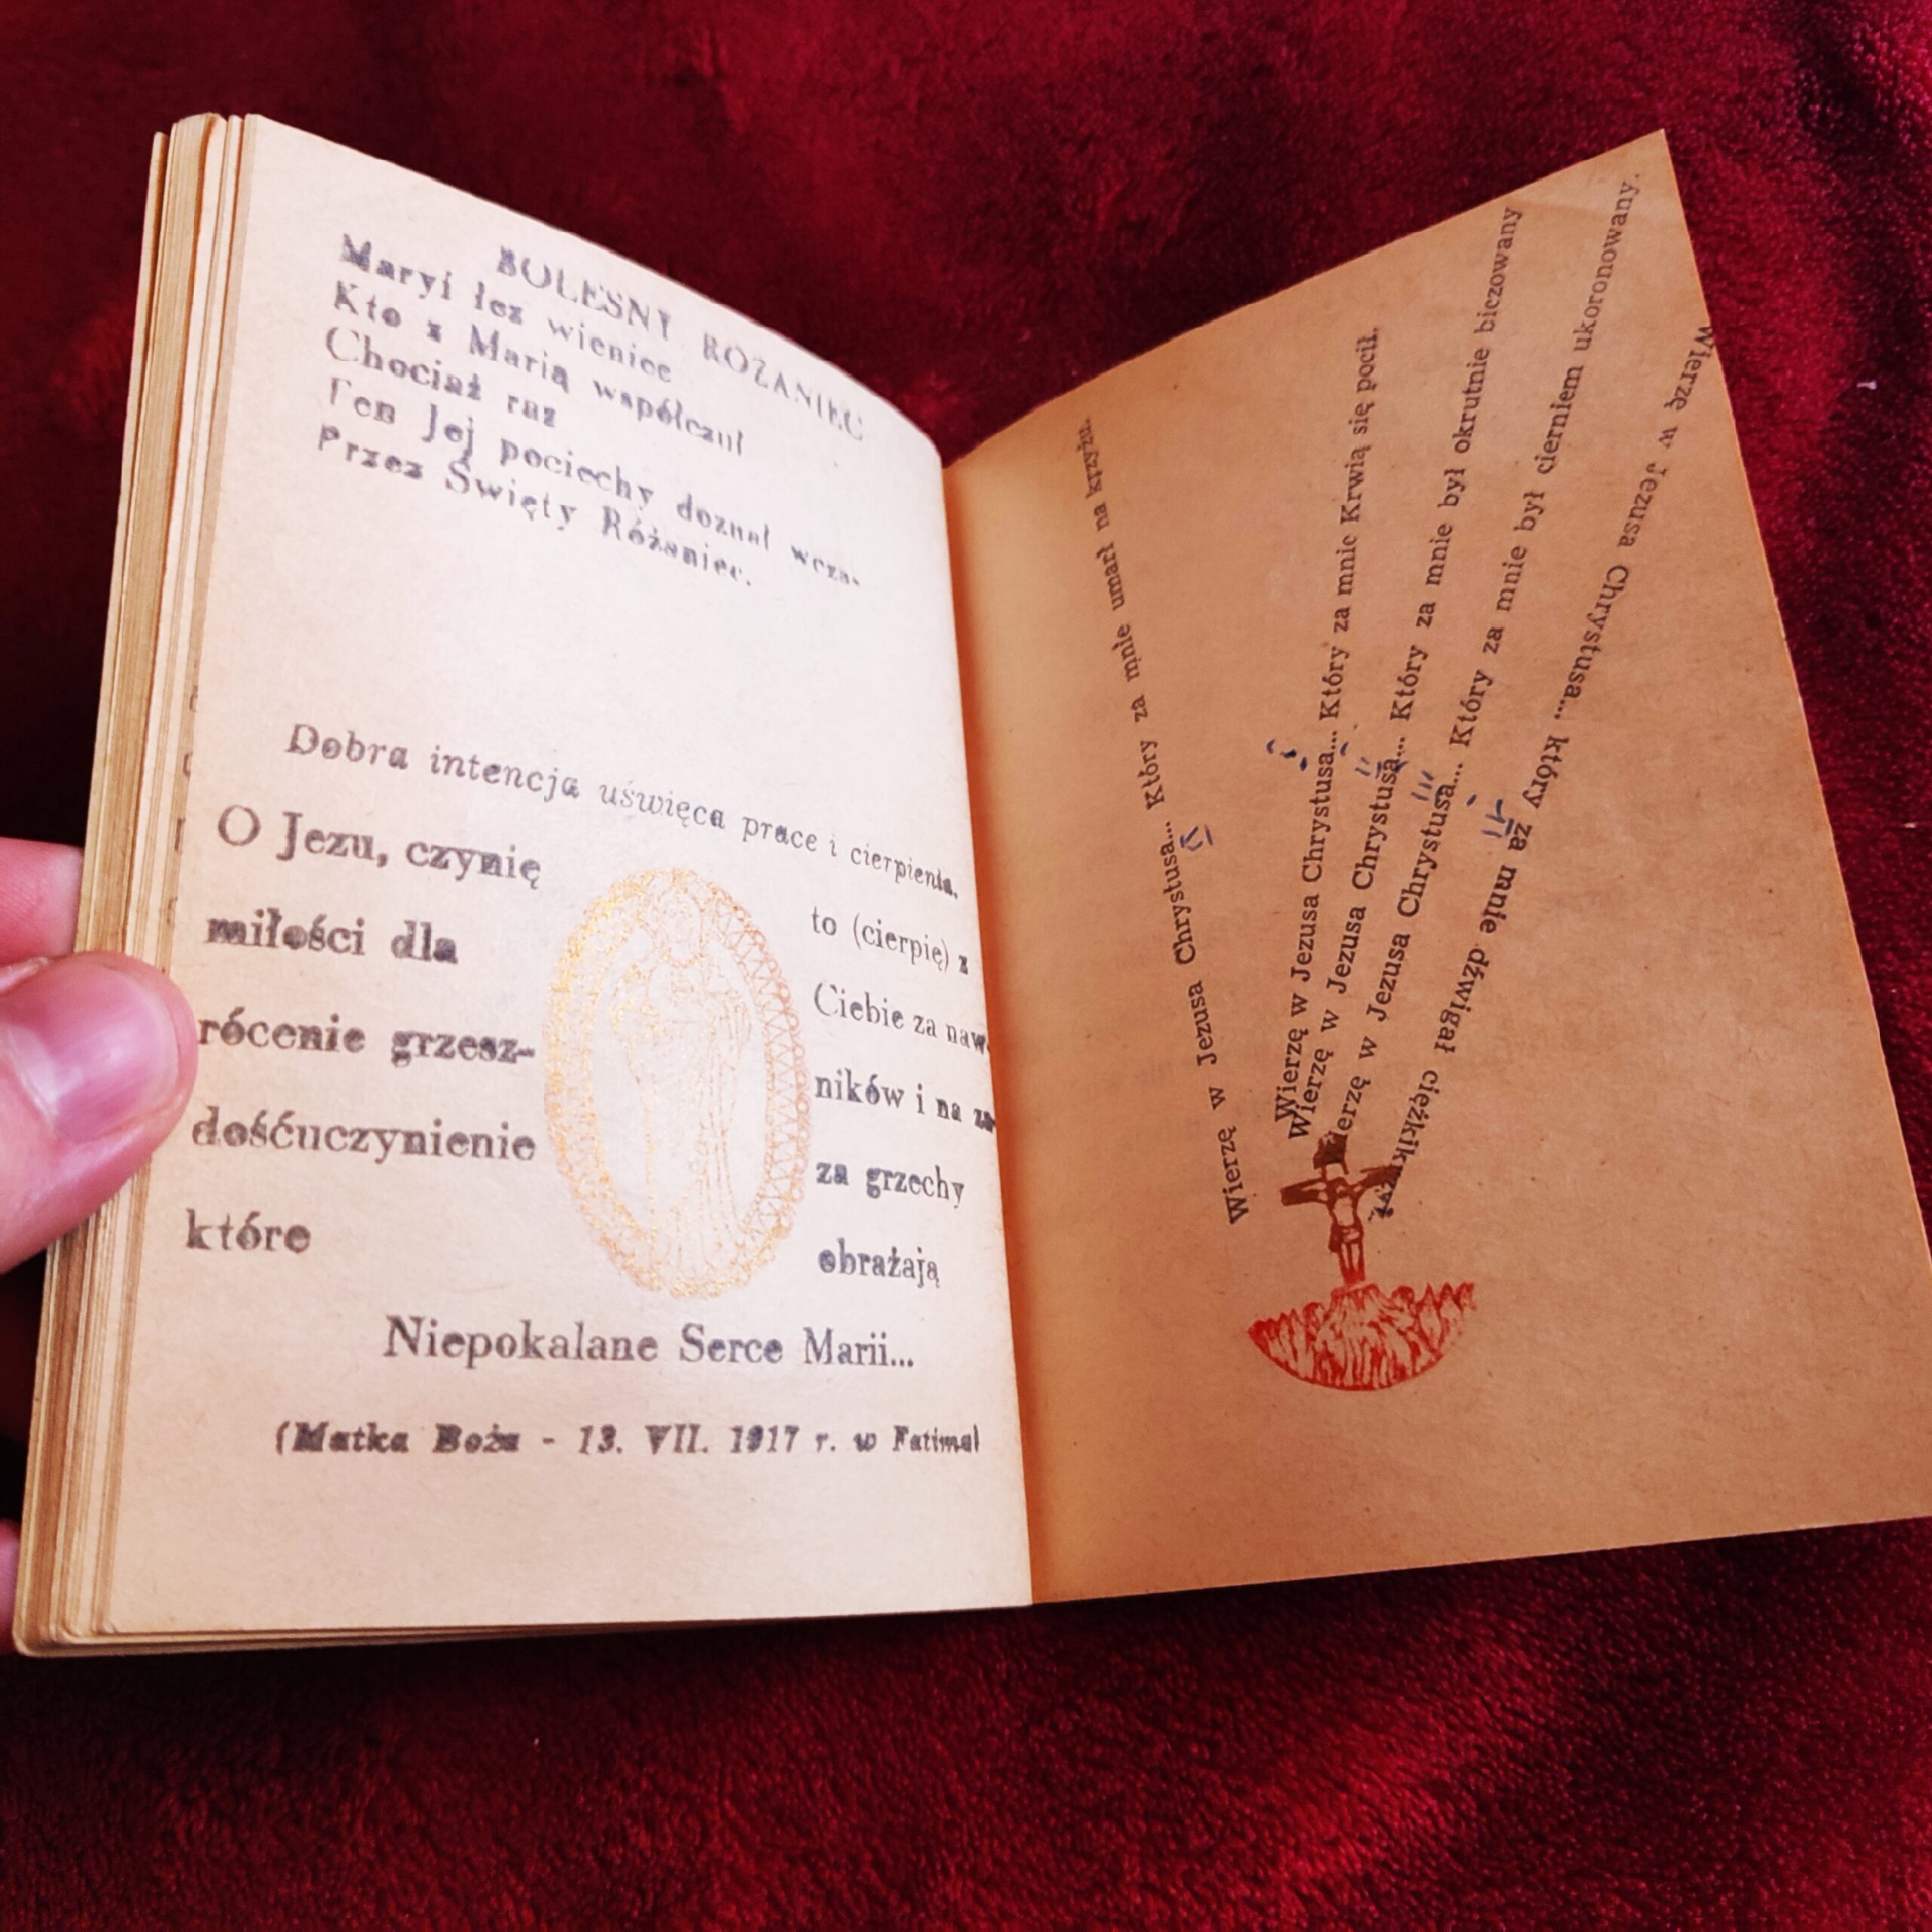 BOLESNY RÓŻANIEC
Maryi łez wieniec
Kto z Marią współczuł
Chociaż raz
Ten Jej pociechy doznał wcza-
Przez Święty Różaniec.
Dobra intencja uświęca prace i cierpienia.
O Jezu, czynię to (cierpię) z
miłości dla Ciebie za naw-
rócenie grzesz- ników i na za-
dośćuczynienie za grzechy
które obrażają
Niepokalane Serce Marii...
(Matka Boża - 13. VII. 1917 r. w Fatima)
Wierzę w Jezusa Chrystusa... Który za mnie umarł na krzyżu.
Wierzę w Jezusa Chrystusa... Który za mnie Krwią się pocił.
Wierzę w Jezusa Chrystusa... Który za mnie był okrutnie biczowany
Wierzę w Jezusa Chrystusa... Który za mnie był cierniem ukoronowany.
Wierzę w Jezusa Chrystusa... który za mnie dźwigał ciężki krzyż